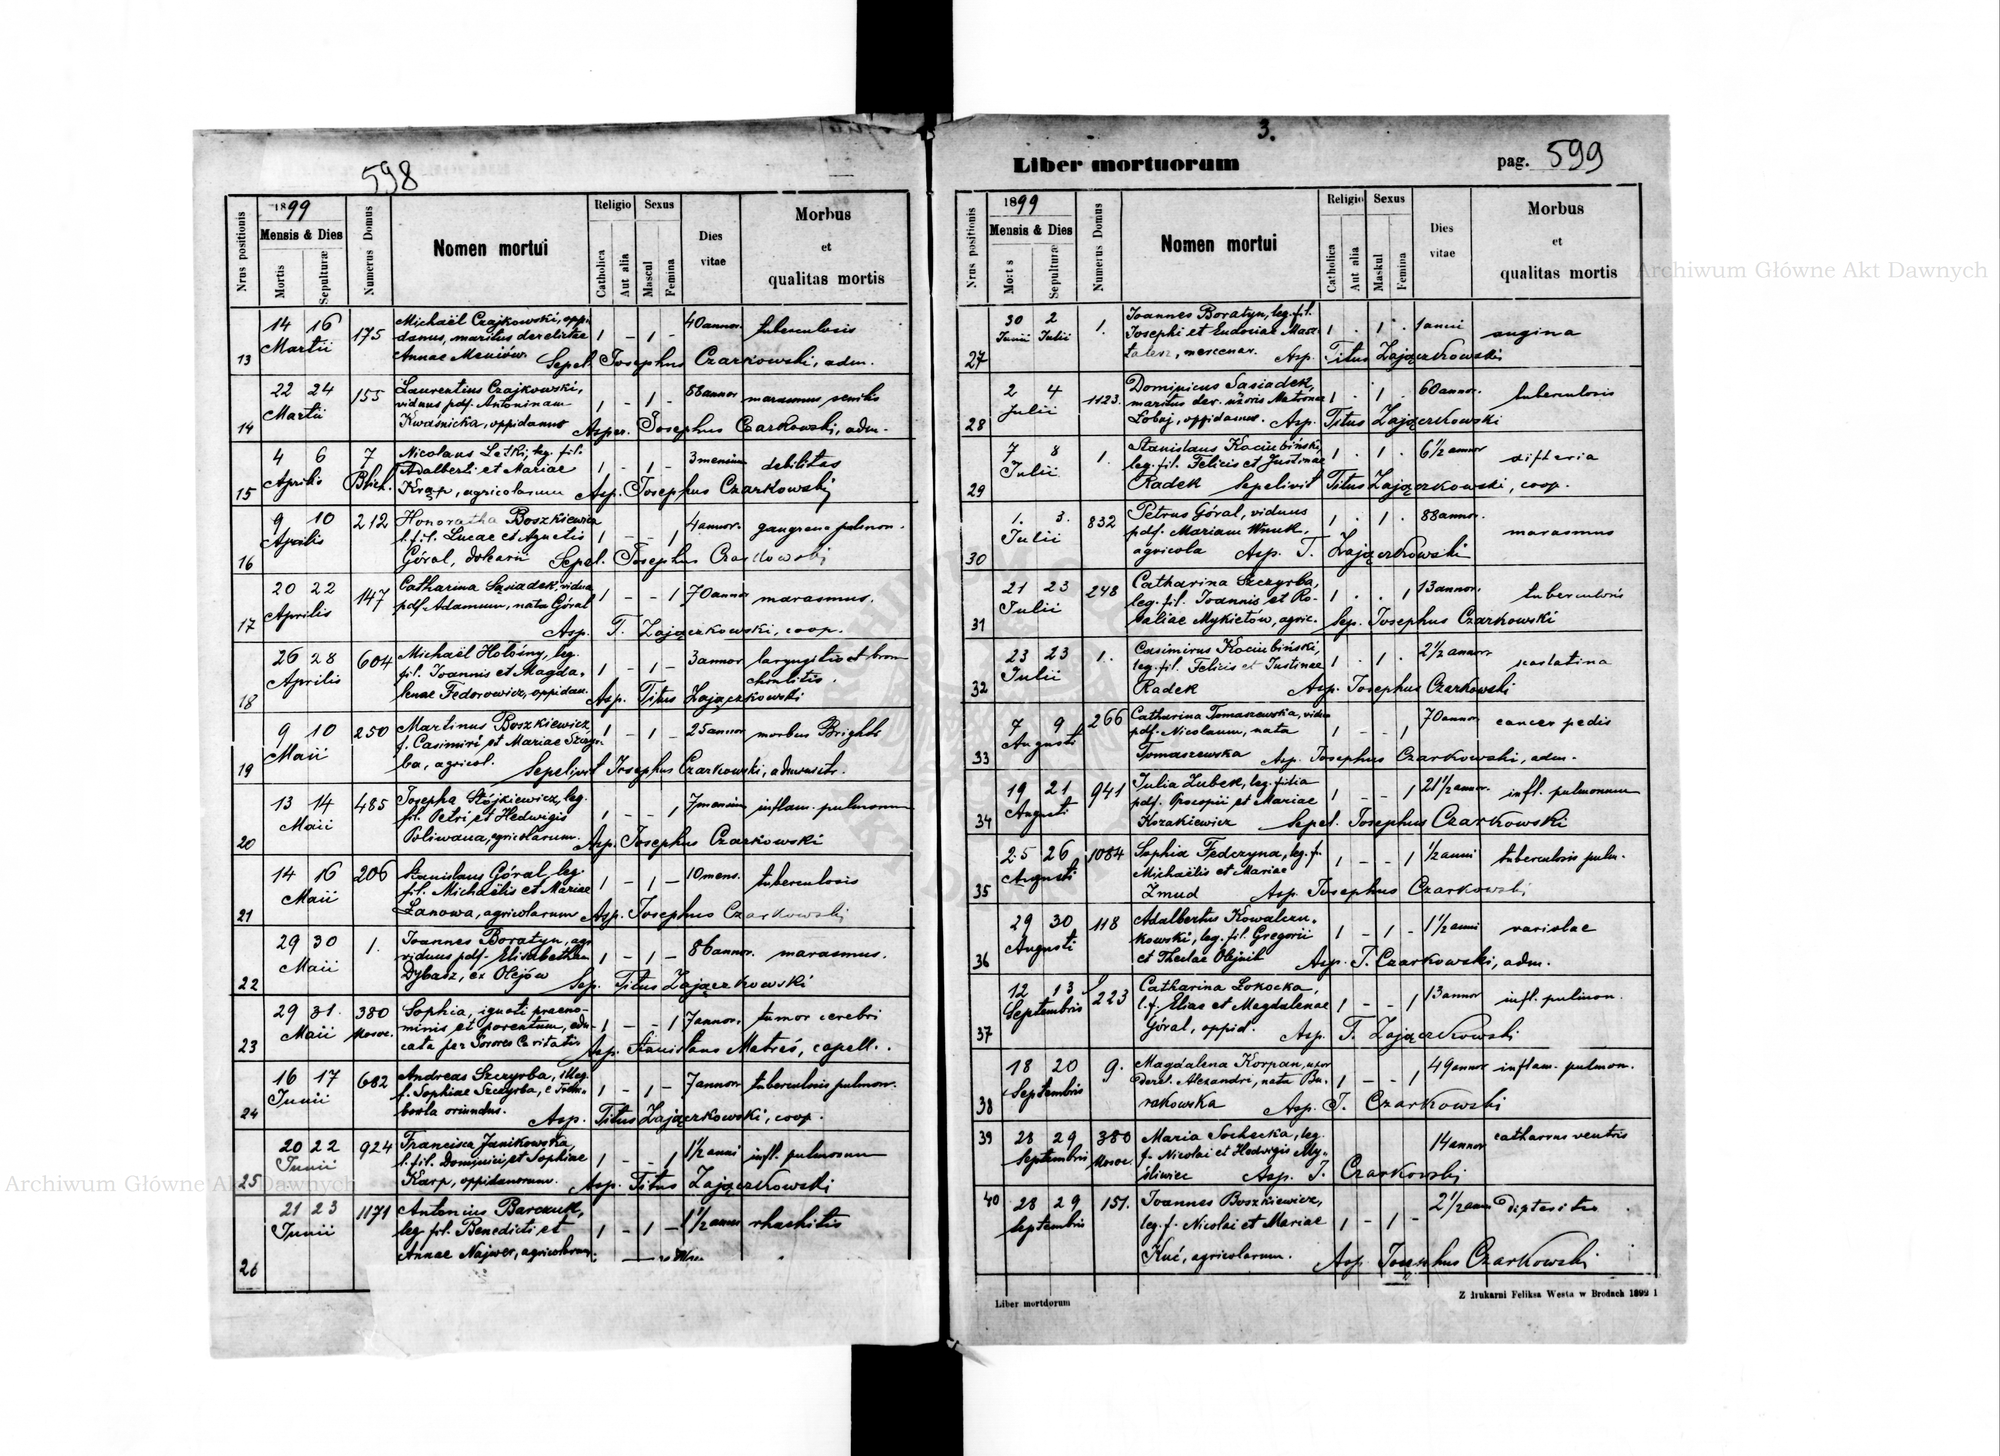 598
1899
Nrus positionis
Mensis & Dies
Mortis
Sepulturæ
Numerus Domus
Nomen mortui
Religio
Catholica
Aut alia
Sexus
Mascul
Femina
Dies vitae
Morbus
et
qualitas mortis
13 14 16 Martii 175 Michaël Czajkowski, oppi-
danus, maritus derelictae 1 - 1 - 40 annor. tuberculosis
Annae Meniów Sepel. Josephus Czarkowski, adm.
14 22 24 Martii 155 Laurentius Czajkowski,
viduus pdf. Antoninam 1 - 1 - annor marasmus senilis
Kwaśnicka, oppidanus Asper. Josephus Czarkowski, adm.
15 4 6 Aprilis 7 Blich. Nicolaus Letki, leg. fil.
Adalberti et Mariae 1 - 1 - 3 mensium debilitas
Krąp, agricolarum Asp. Josephus Czarkowski
16 9 10 Aprilis 212 Honoratha Boszkiewicz
l. fil. Lucae et Agnetis 1 - - 1 4 annor. gangrena pulmon.
Góral, Sepel. Josephus Czarkowski
17 20 22 Aprilis 147 Catharina Sąsiadek, vidua
pdf. Adamum, nata Góral 1 - - 1 70 annor marasmus.
Asp. T. Zajączkowski, coop.
18 26 28 Aprilis 604 Michaël Hołośny, leg.
fil. Joannis et Magda- 1 - 1 - 3 annor laryngitis et bron
lenae Fedorowicz, oppidan. chonlitis.
Asp. Titus Zajączkowski
19 9 10 Maii 250 Martinus Boszkiewicz
f. Casimiri et Mariae Szczyr- 1 - 1 - 25 annor morbus Brighti
ba, agricol. Sepelivit Josephus Czarkowski, administr.
20 13 14 Maii 485 Josepha Stójkiewicz, leg.
fil. Petri et Hedwigis 1 - - 1 7 mensium inflam. pulmonum
Poliwana, agricolarum. Asp. Josephus Czarkowski
21 14 16 Maii 206 Stanislaus Góral, leg.
fil. Michaëlis et Mariae 1 - 1 - 10 mens. tuberculosis
Łanowa, agricolarum Asp. Josephus Czarkowski
22 29 30 Maii 1. Joannes Boratyn, agr
viduus pdf. Elisabetham 1 - 1 - 86 annor. marasmus.
Dybasz, ex Olejów Sep. Titus Zajączkowski
23 29 31. Maii 380 Nosoc. Sophia, ignoti praeno-
minis et parentum, edu- 1 - - 1 7 annor. tumor cerebri
cata per Sorores Caritatis Asp. Stanislaus Matreś, capell.
24 16 17 Junii 682 Andreas Szczyrba, illeg.
f. Sophiae Szczyrba, e Trem- 1 - 1 - 7 annor tuberculosis pulmon.
bowla oriundus. Asp. Titus Zajączkowski, coop.
25 20 22 Junii 924 Francisca Janikowska,
l. fil. Dominici et Sophiae 1 - - 1 1½ anni infl. pulmonum
Karp, oppidanorum. Asp. Titus Zajączkowski
26 21 23 Junii 1171 Antonius Barczuk,
leg fil. Benedicti et 1 - 1 - 1½ annor rhachitis
Annae Najwer, agricolarum.
3.
Liber mortuorum
pag. 599
1899
Nrus positionis
Mensis & Dies
Mortis
Sepulturæ
Numerus Domus
Nomen mortui
Religio
Catholica
Aut alia
Sexus
Maskul
Femina
Dies vitae
Morbus
et
qualitas mortis
27 30 Junii 2 Julii 1. Joannes Boratyn, leg. fil.
Josephi et Eudociae Mac- 1 . 1 . 1 anni angina
mercenar. Asp. Titus Zajączkowski
28 2 4 Julii 1123. Dominicus Sasiadek,
maritus der. uxoris Matronae 1 . 1 . 60 annor. tuberculosis
Łobaj, oppidanus. Asp. Titus Zajączkowski
29 7 8 Julii 1. Stanislaus Kociubiński,
leg. fil. Felicis et Justinae 1 . 1 . 6½ annor difteria
Radek Sepelivit Titus Zajączkowski, coop.
30 1. 3. Julii 832 Petrus Góral, viduus
pdf. Mariam Wnuk, 1 . 1 . 88 annor. marasmus
agricola Asp. T. Zajączkowski
31 21 23 Julii 248 Catharina Szczyrba,
leg. fil. Joannis et Ro- 1 . . 1 13 annor. tuberculosis
saliae Mykietów, agric. Sep. Josephus Czarkowski
32 23 23 Julii 1. Casimirus Kociubiński,
leg. fil. Felicis et Justinae 1 . 1 . 2½ annor. scarlatina
Radek Asp. Josephus Czarkowski
33 7 9 Augusti 266 Catharina Tomaszewska, vidua
pdf. Nicolaum, nata 1 - - 1 70 annor. cancer pedis
Tomaszewska Asp. Josephus Czarkowski, adm.
34 19 21 Augusti 941 Julia Zubek, leg. filia
pdf. Procopii et Mariae 1 - - 1 21½ annor. infl. pulmonum
Kozakiewicz Sepel. Josephus Czarkowski
35 25 26 Augusti 1084 Sophia Fedczyna, leg. f.
Michaëlis et Mariae 1 - - 1 ½ anni tuberculosis pulm.
Żmud Asp. Josephus Czarkowski
36 29 30 Augusti 118 Adalbertus Kowalczu-
kowski, leg. fil. Gregorii 1 - 1 - 1½ anni variolae
et Theclae Olejnik Asp. J. Czarkowski, adm.
37 12 13 Septembris 223 Catharina Łokocka,
l. f. Eliae et Magdalenae 1 - - 1 13 annor infl. pulmon.
Góral, oppid Asp. T. Zajączkowski
38 18 20 Septembris 9. Magdalena Korpan, uxor
derel. Alexandri, nata Bu- 1 - - 1 49 annor inflam. pulmon.
rakowska Asp. J. Czarkowski
39 28 29 Septembris 380 Nosoc. Maria Sochecka, leg.
f. Nicolai et Hedwigis My- 14 annor catharrus ventris
śliwiec Asp. J. Czarkowski
40 28 29 Septembris 151. Joannes Boszkiewicz,
leg. f. Nicolai et Mariae 1 - 1 - 2½ anni
Kuć, agricolarum. Asp. Josephus Czarkowski
Liber mortdorum
Z drukarni Feliksa Westa w Brodach 1899 1
Archiwum Główne Akt Dawnych
Archiwum Główne Akt Dawnych